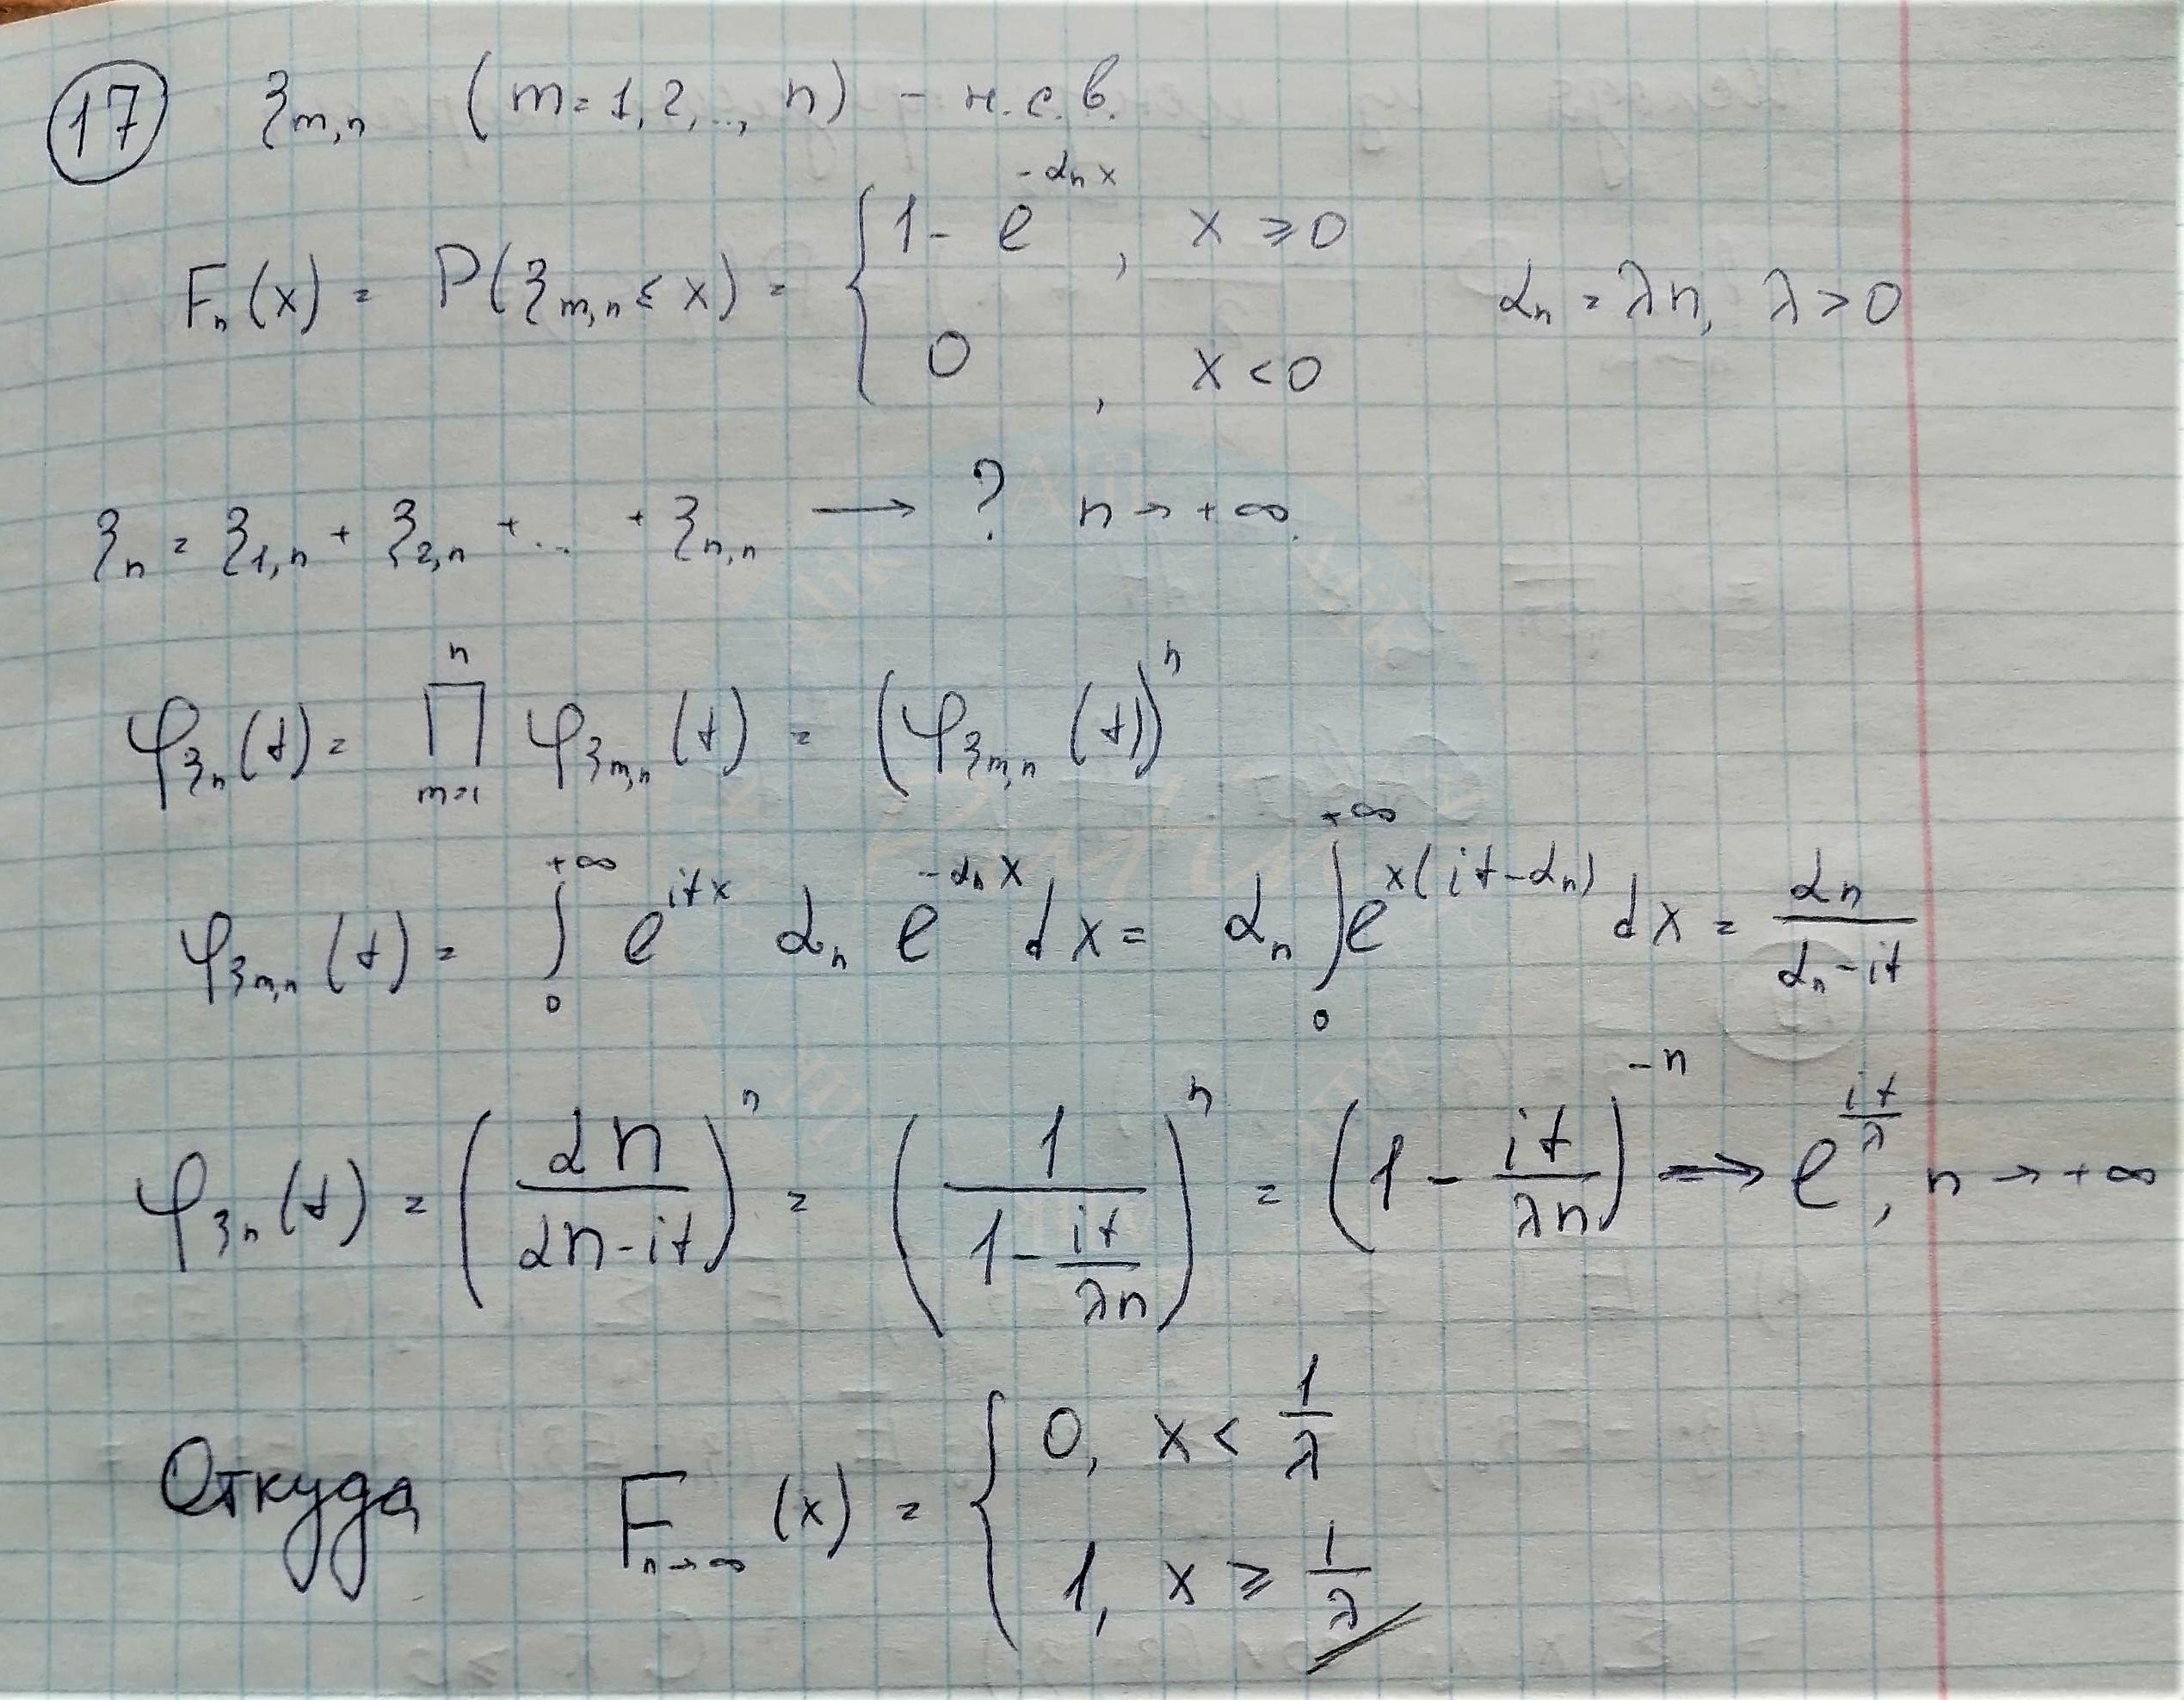 17 ξ_{m,n} (m=1,2,.., n) - н.с.в.
F_n(x) = P(ξ_{m,n} ≤ x) = { 1- e^{-α_n x}, x ⩾ 0 α_n = λn, λ > 0
0, x < 0
ξ_n = ξ_{1,n} + ξ_{2,n} + ... + ξ_{n,n} → ? n → +∞.
φ_{ξ_n}(t) = ∏_{m=1}^{n} φ_{ξ_{m,n}}(t) = (φ_{ξ_{m,n}}(t))^n
φ_{ξ_{m,n}}(t) = ∫_0^{+∞} e^{itx} α_n e^{-α_n x} dx = α_n ∫_0^{+∞} e^{x(it-α_n)} dx = α_n / (α_n - it)
φ_{ξ_n}(t) = (αn / (αn - it))^n = (1 / (1 - it/λn))^n = (1 - it/λn)^{-n} → e^{it/λ}, n → +∞
Откуда F_{n→∞}(x) = { 0, x < 1/λ
1, x ⩾ 1/λ